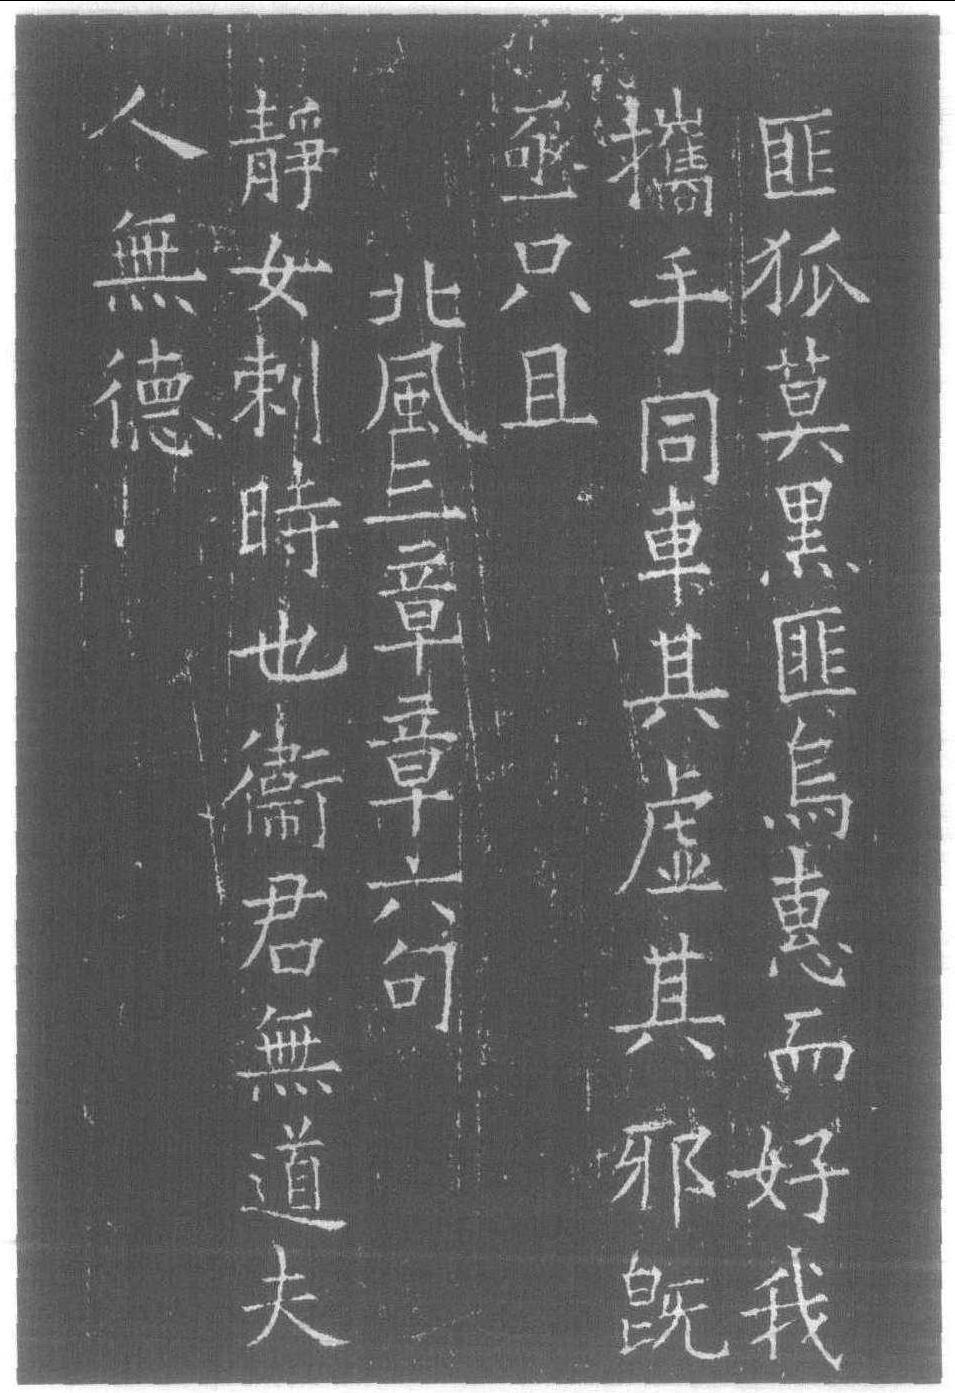 匪狐莫黑匪烏惠而好我
攜手同車其虛其邪既
亟只且
北風三章章六句
靜女刺時也衞君無道夫
人無德